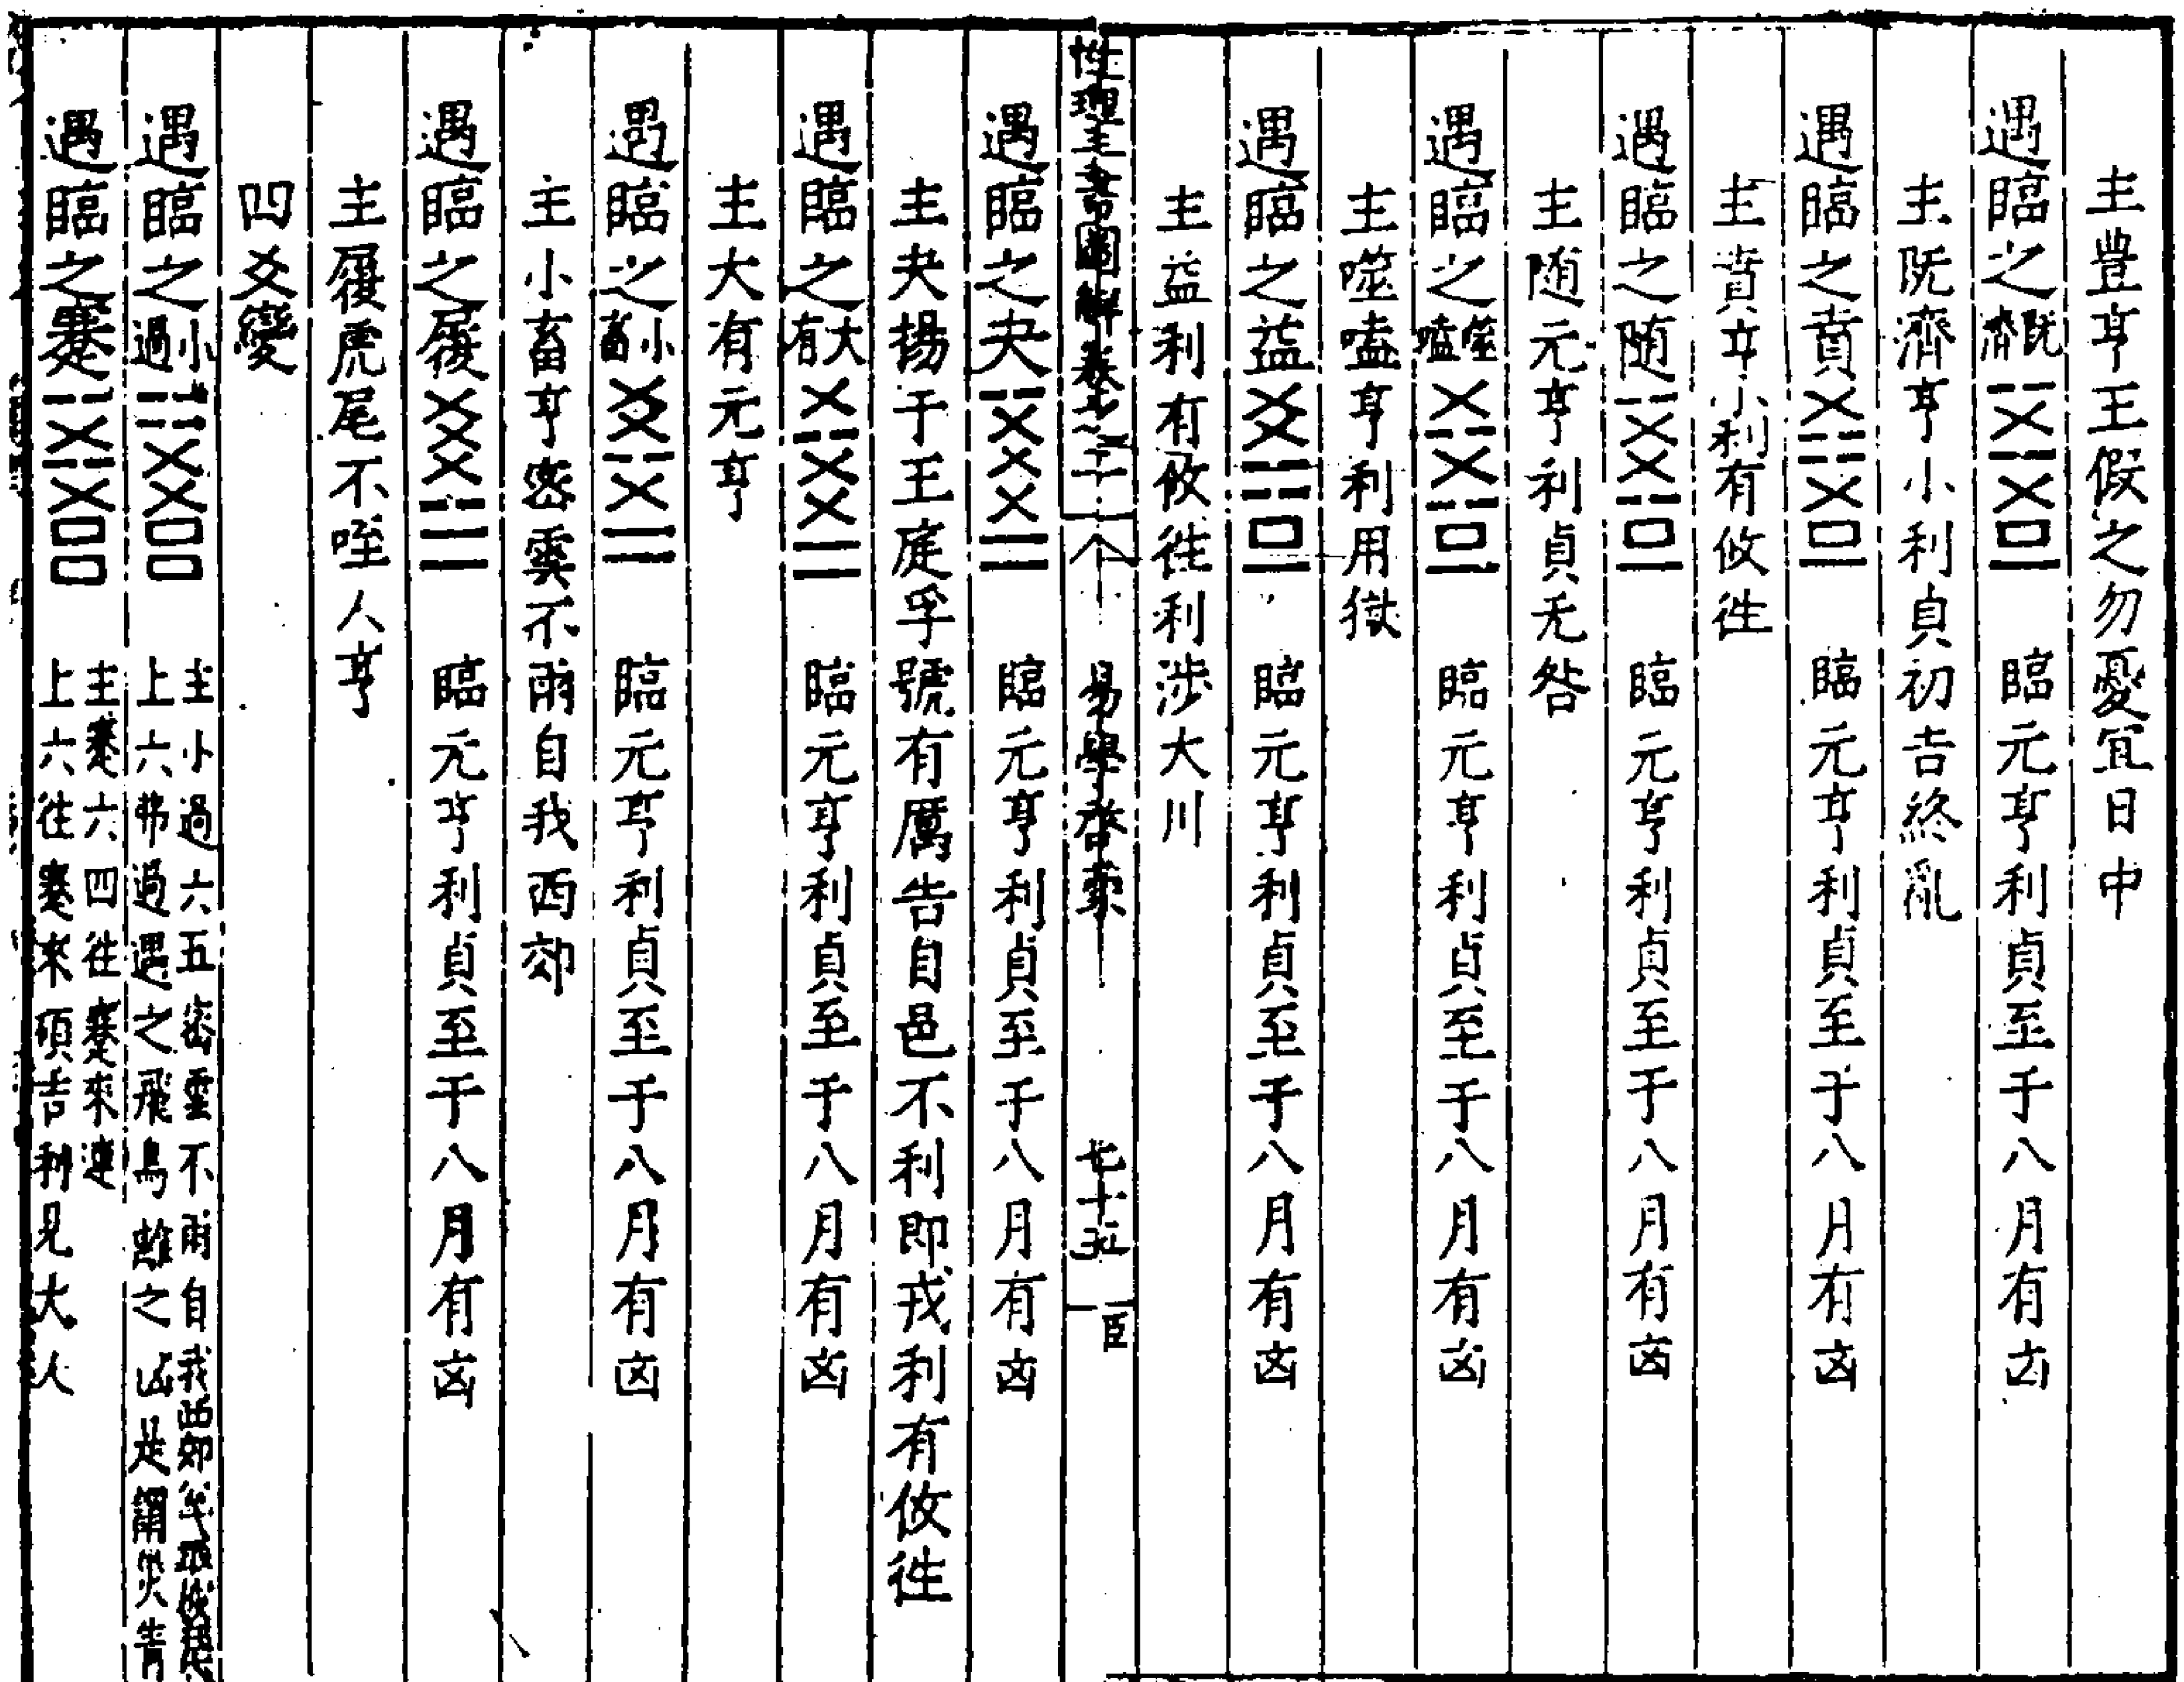 主豊亨王假之勿憂宜日中
遇臨之既濟 臨元亨利貞至于八月有凶
主既濟亨小利貞初吉終亂
遇臨之賁 臨元亨利貞至于八月有凶
主賁亨小利有攸往
遇臨之随 臨元亨利貞至于八月有凶
主随元亨利貞无咎
遇臨之噬嗑 臨元亨利貞至于八月有凶
主噬嗑亨利用獄
遇臨之益 臨元亨利貞至于八月有凶
主益利有攸往利涉大川
性理全書圖解卷之 易學啓蒙 七十五
遇臨之夬 臨元亨利貞至于八月有凶
主夬揚于王庭孚號有厲告自邑不利即戎利有攸往
遇臨之大有 臨元亨利貞至于八月有凶
主大有元亨
遇臨之小畜 臨元亨利貞至于八月有凶
主小畜亨密雲不雨自我西郊
遇臨之履 臨元亨利貞至于八月有凶
主履虎尾不咥人亨
四爻變
遇臨之小過 主小過六五密雲不雨自我西郊
上六弗過遇之飛鳥離之凶是謂災眚
遇臨之蹇 主蹇六四往蹇來連
上六往蹇來碩吉利見大人